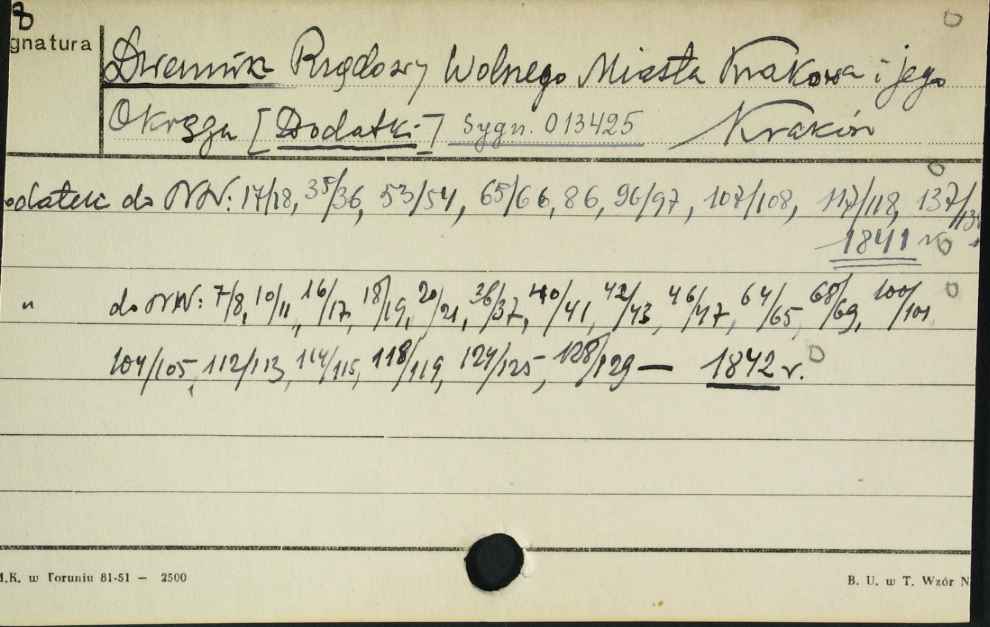 8
gnatura
Dziennik Rządowy Wolnego Miasta Krakowa i jego
Okręgu [Dodatki] Sygn. 013425 Kraków
odatek do NN: 17/18, 35/36, 53/54, 65/66, 86, 96/97, 107/108, 117/118, 137/138
1841 r.
" do NN: 7/8, 10/11, 16/17, 18/19, 20/21, 36/37, 40/41, 42/43, 46/47, 64/65, 68/69, 100/101
104/105, 112/113, 114/115, 118/119, 124/125, 128/129 — 1842 r.
.K. w Toruniu 81-51 — 2500
B. U. w T. Wzór N